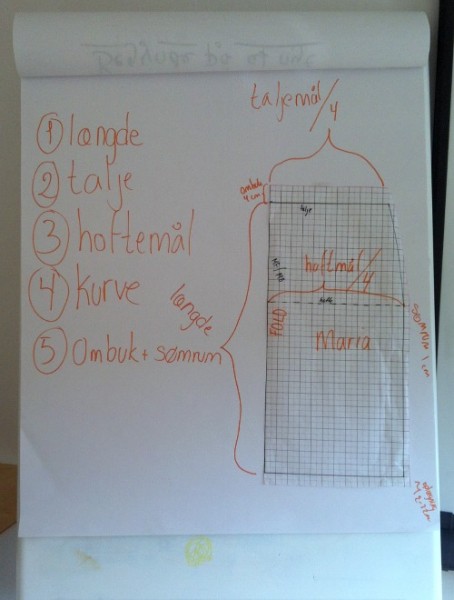 taljemål/4
① længde
② talje
③ hoftemål
④ kurve
⑤ Ombuk + sømrum
længde
ombuk
4 cm
talje
hoftmål/4
hofte
FOLD
Maria
SØMRUM 1 cm